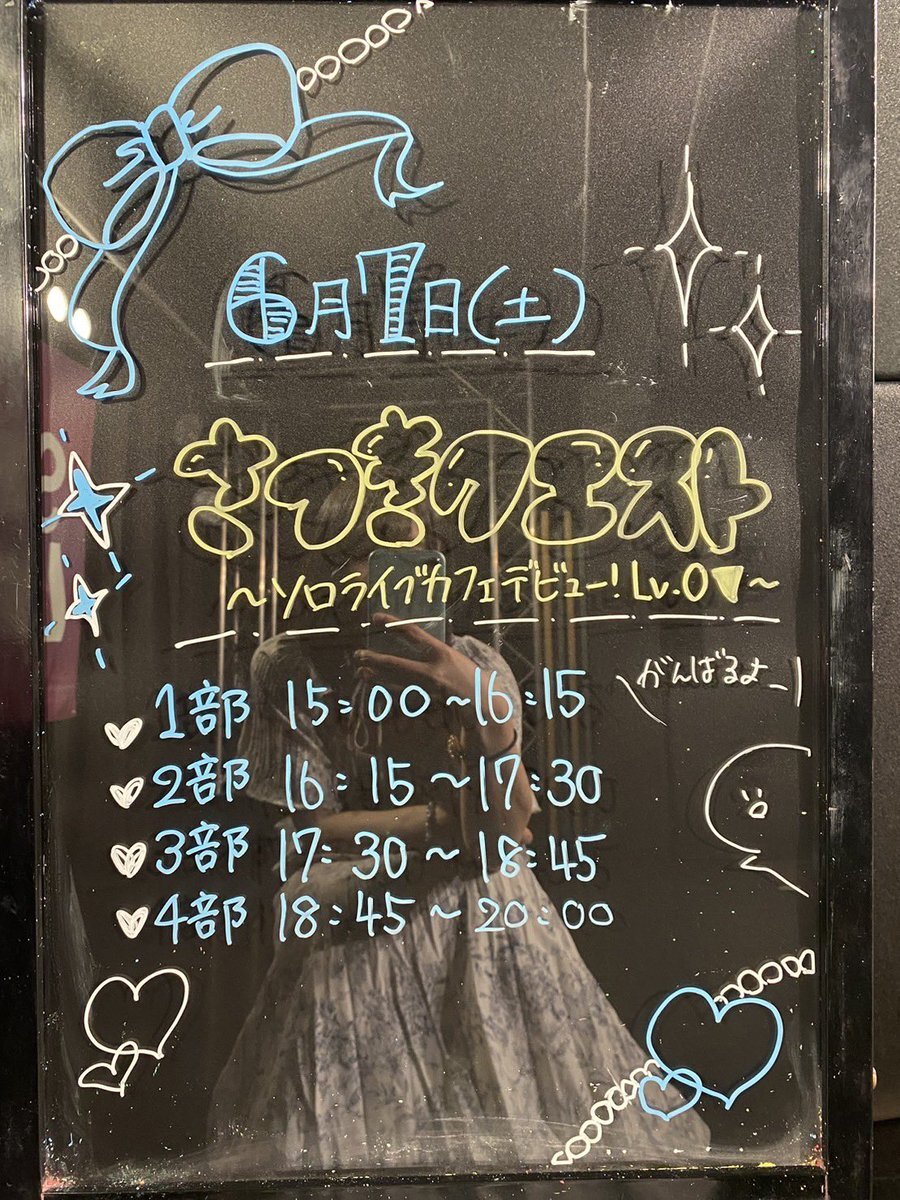 6月1日(土)
さつきクエスト
～ソロライブカフェデビュー!Lv.0▼～
がんばるよー
1部 15:00～16:15
2部 16:15～17:30
3部 17:30～18:45
4部 18:45～20:00